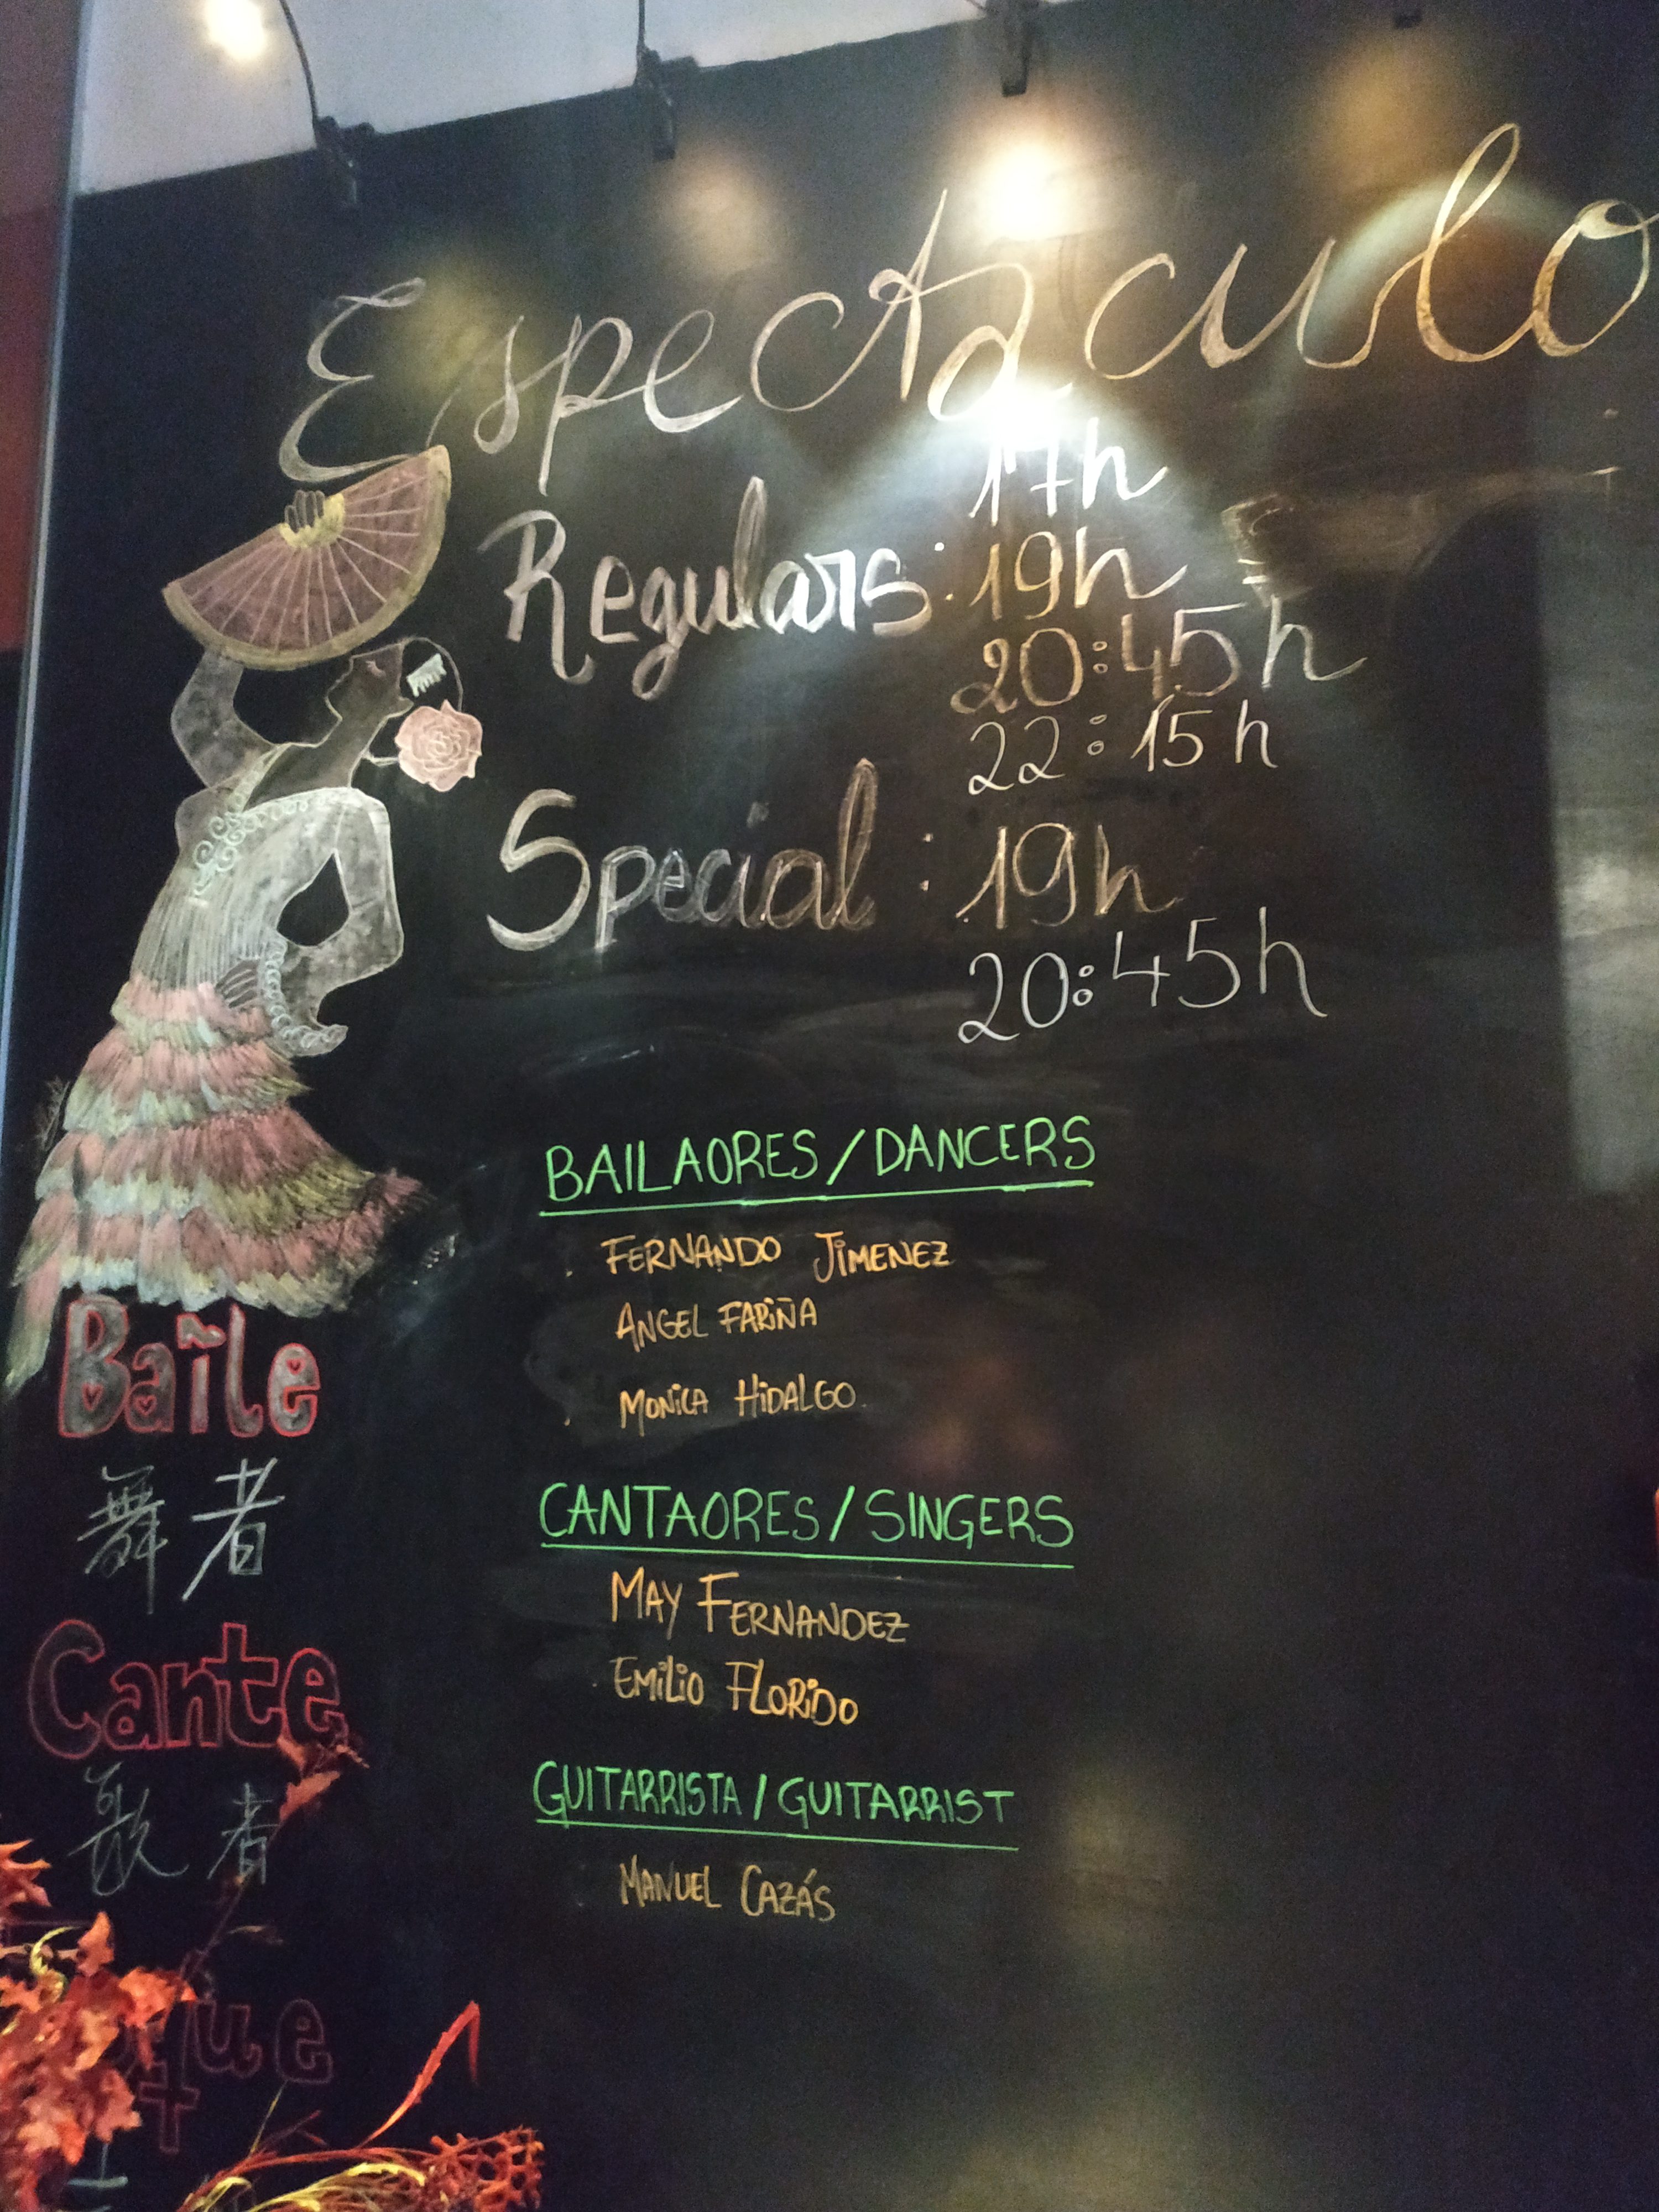 Espectaculo
17h
Regulars: 19h
20:45h
22:15h
Special: 19h
20:45h
BAILAORES/DANCERS
FERNANDO JIMENEZ
ANGEL FARIÑA
MONICA HIDALGO.
CANTAORES/SINGERS
MAY FERNANDEZ
EMILIO FLORIDO
GUITARRISTA/GUITARRIST
MANUEL CAZÁS
Baile
舞者
Cante
歌者